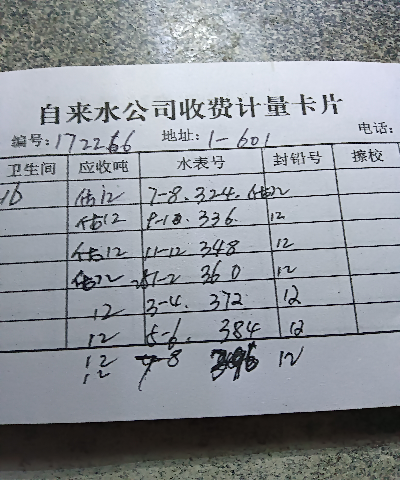 自来水公司收费计量卡片
编号: 172266 地址: 1-601 电话:
卫生间 应收吨 水表号 封铅号 擦校
16 估12 7-8. 324. 估12
估12 9-10. 336 12
估12 11-12 348 12
估12 1-2 360 12
12 3-4. 372 12
12 5-6. 384 12
12 7-8 396 12
12